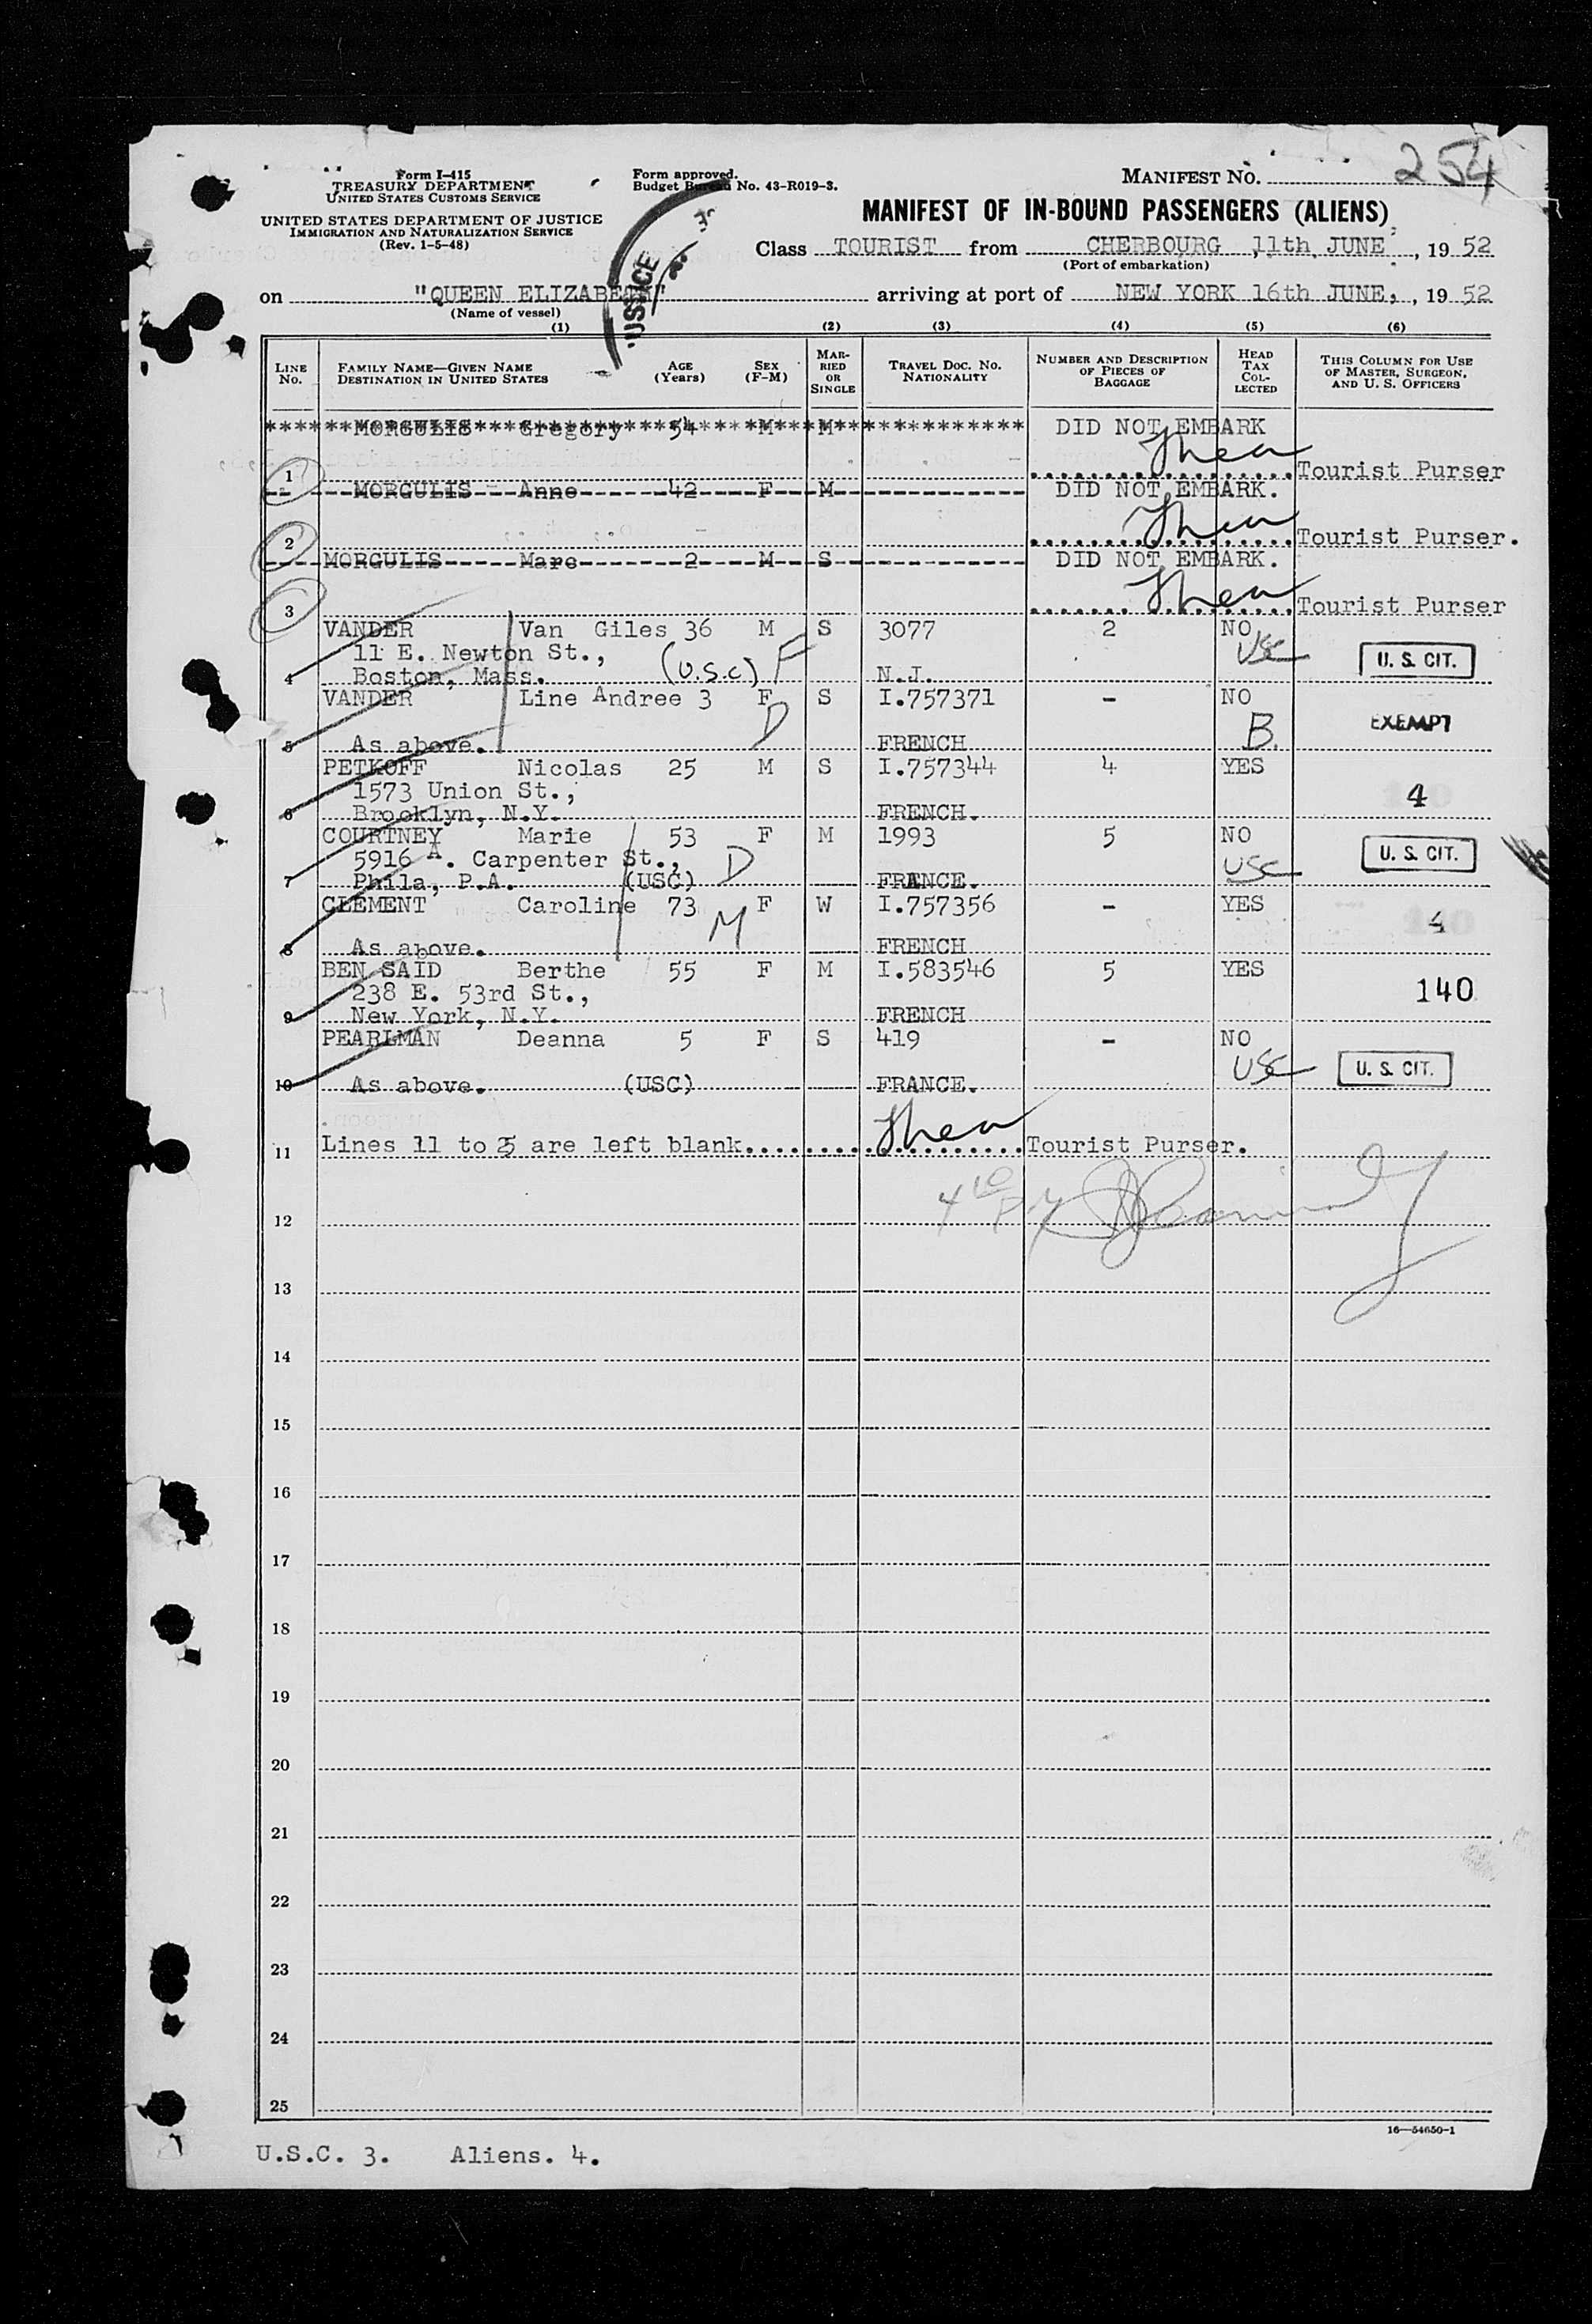 254
Form I-415
TREASURY DEPARTMENT
UNITED STATES CUSTOMS SERVICE
UNITED STATES DEPARTMENT OF JUSTICE
IMMIGRATION AND NATURALIZATION SERVICE
(Rev. 1-5-48)
Form approved.
Budget Bureau No. 43-R019-3.
MANIFEST NO.
MANIFEST OF IN-BOUND PASSENGERS (ALIENS)
Class TOURIST from CHERBOURG, 11th JUNE, 1952
(Port of embarkation)
on "QUEEN ELIZABETH" arriving at port of NEW YORK 16th JUNE, , 1952
(Name of vessel)
USTICE
(1) (2) (3) (4) (5) (6)
LINE NO. FAMILY NAME—GIVEN NAME DESTINATION IN UNITED STATES AGE (Years) SEX (F-M) MARRIED OR SINGLE TRAVEL DOC. NO. NATIONALITY NUMBER AND DESCRIPTION OF PIECES OF BAGGAGE HEAD TAX COLLECTED THIS COLUMN FOR USE OF MASTER, SURGEON, AND U. S. OFFICERS
MORGULIS Gregory 54 M M DID NOT EMBARK
1 Tourist Purser
MORGULIS Anne 42 F M DID NOT EMBARK.
2 Tourist Purser.
MORGULIS Marc 2 M S DID NOT EMBARK.
3 Tourist Purser
VANDER Van Giles 36 M S 3077 2 NO
11 E. Newton St., (U.S.C) F USC U. S. CIT.
4 Boston, Mass. N.J.
VANDER Line Andree 3 F S I.757371 - NO
D B. EXEMPT
5 As above. FRENCH
PETKOFF Nicolas 25 M S I.757344 4 YES
1573 Union St., 4
6 Brooklyn, N.Y. FRENCH.
COURTNEY Marie 53 F M 1993 5 NO
5916 A. Carpenter St., D USC U. S. CIT.
7 Phila, P.A. (USC) FRANCE.
CLEMENT Caroline 73 F W I.757356 - YES
M 4
8 As above. FRENCH
BEN SAID Berthe 55 F M I.583546 5 YES
238 E. 53rd St., 140
9 New York, N.Y. FRENCH
PEARLMAN Deanna 5 F S 419 - NO
USC U. S. CIT.
10 As above. (USC) FRANCE.
11 Lines 11 to 25 are left blank. Tourist Purser.
12
13
14
15
16
17
18
19
20
21
22
23
24
25
16—54650-1
U.S.C. 3. Aliens. 4.